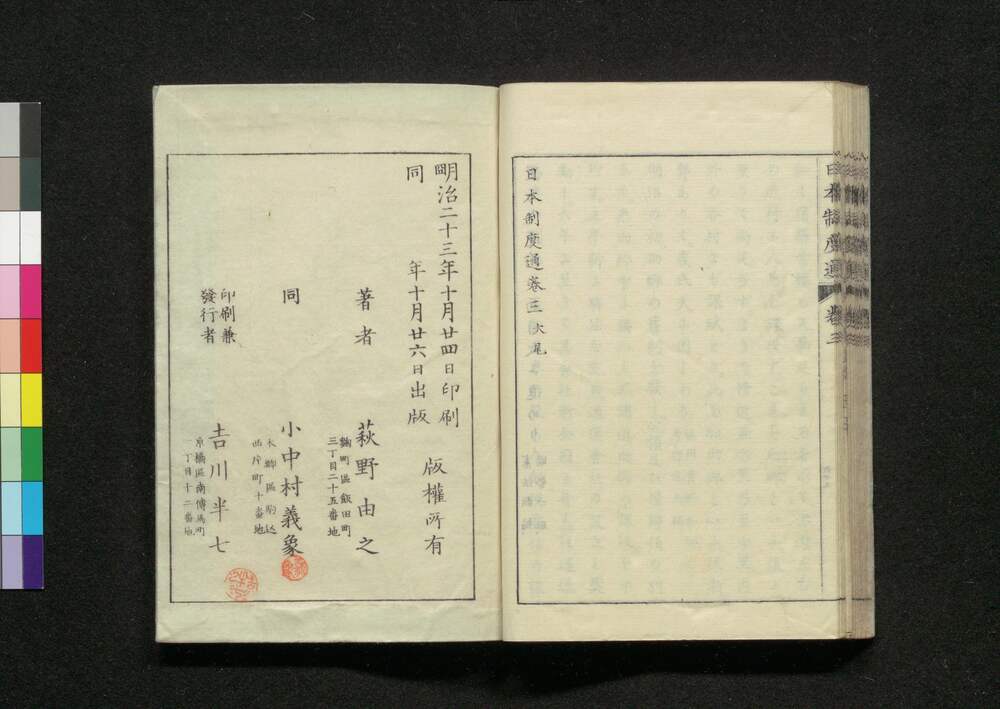 日本制度通 卷三
日本制度通卷三大尾
明治二十三年十月廿四日印刷
同 年十月廿六日出版
版權所有
著者 萩野由之
麹町區飯田町
三丁目二十五番地
同 小中村義象
本郷區駒込
西片町十番地
印刷兼
發行者 吉川半七
京橋區南傳馬町
一丁目十二番地